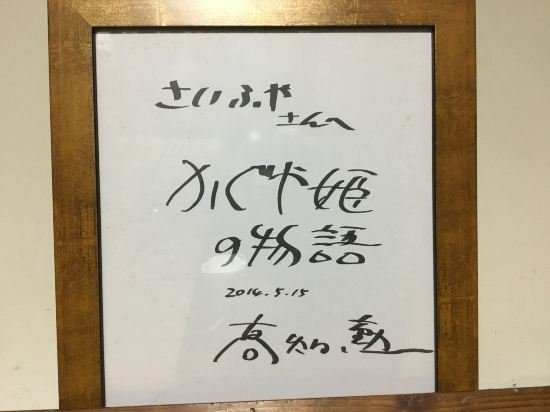 さいふや
さんへ
かぐや姫
の物語
2014.5.15
高畑勲